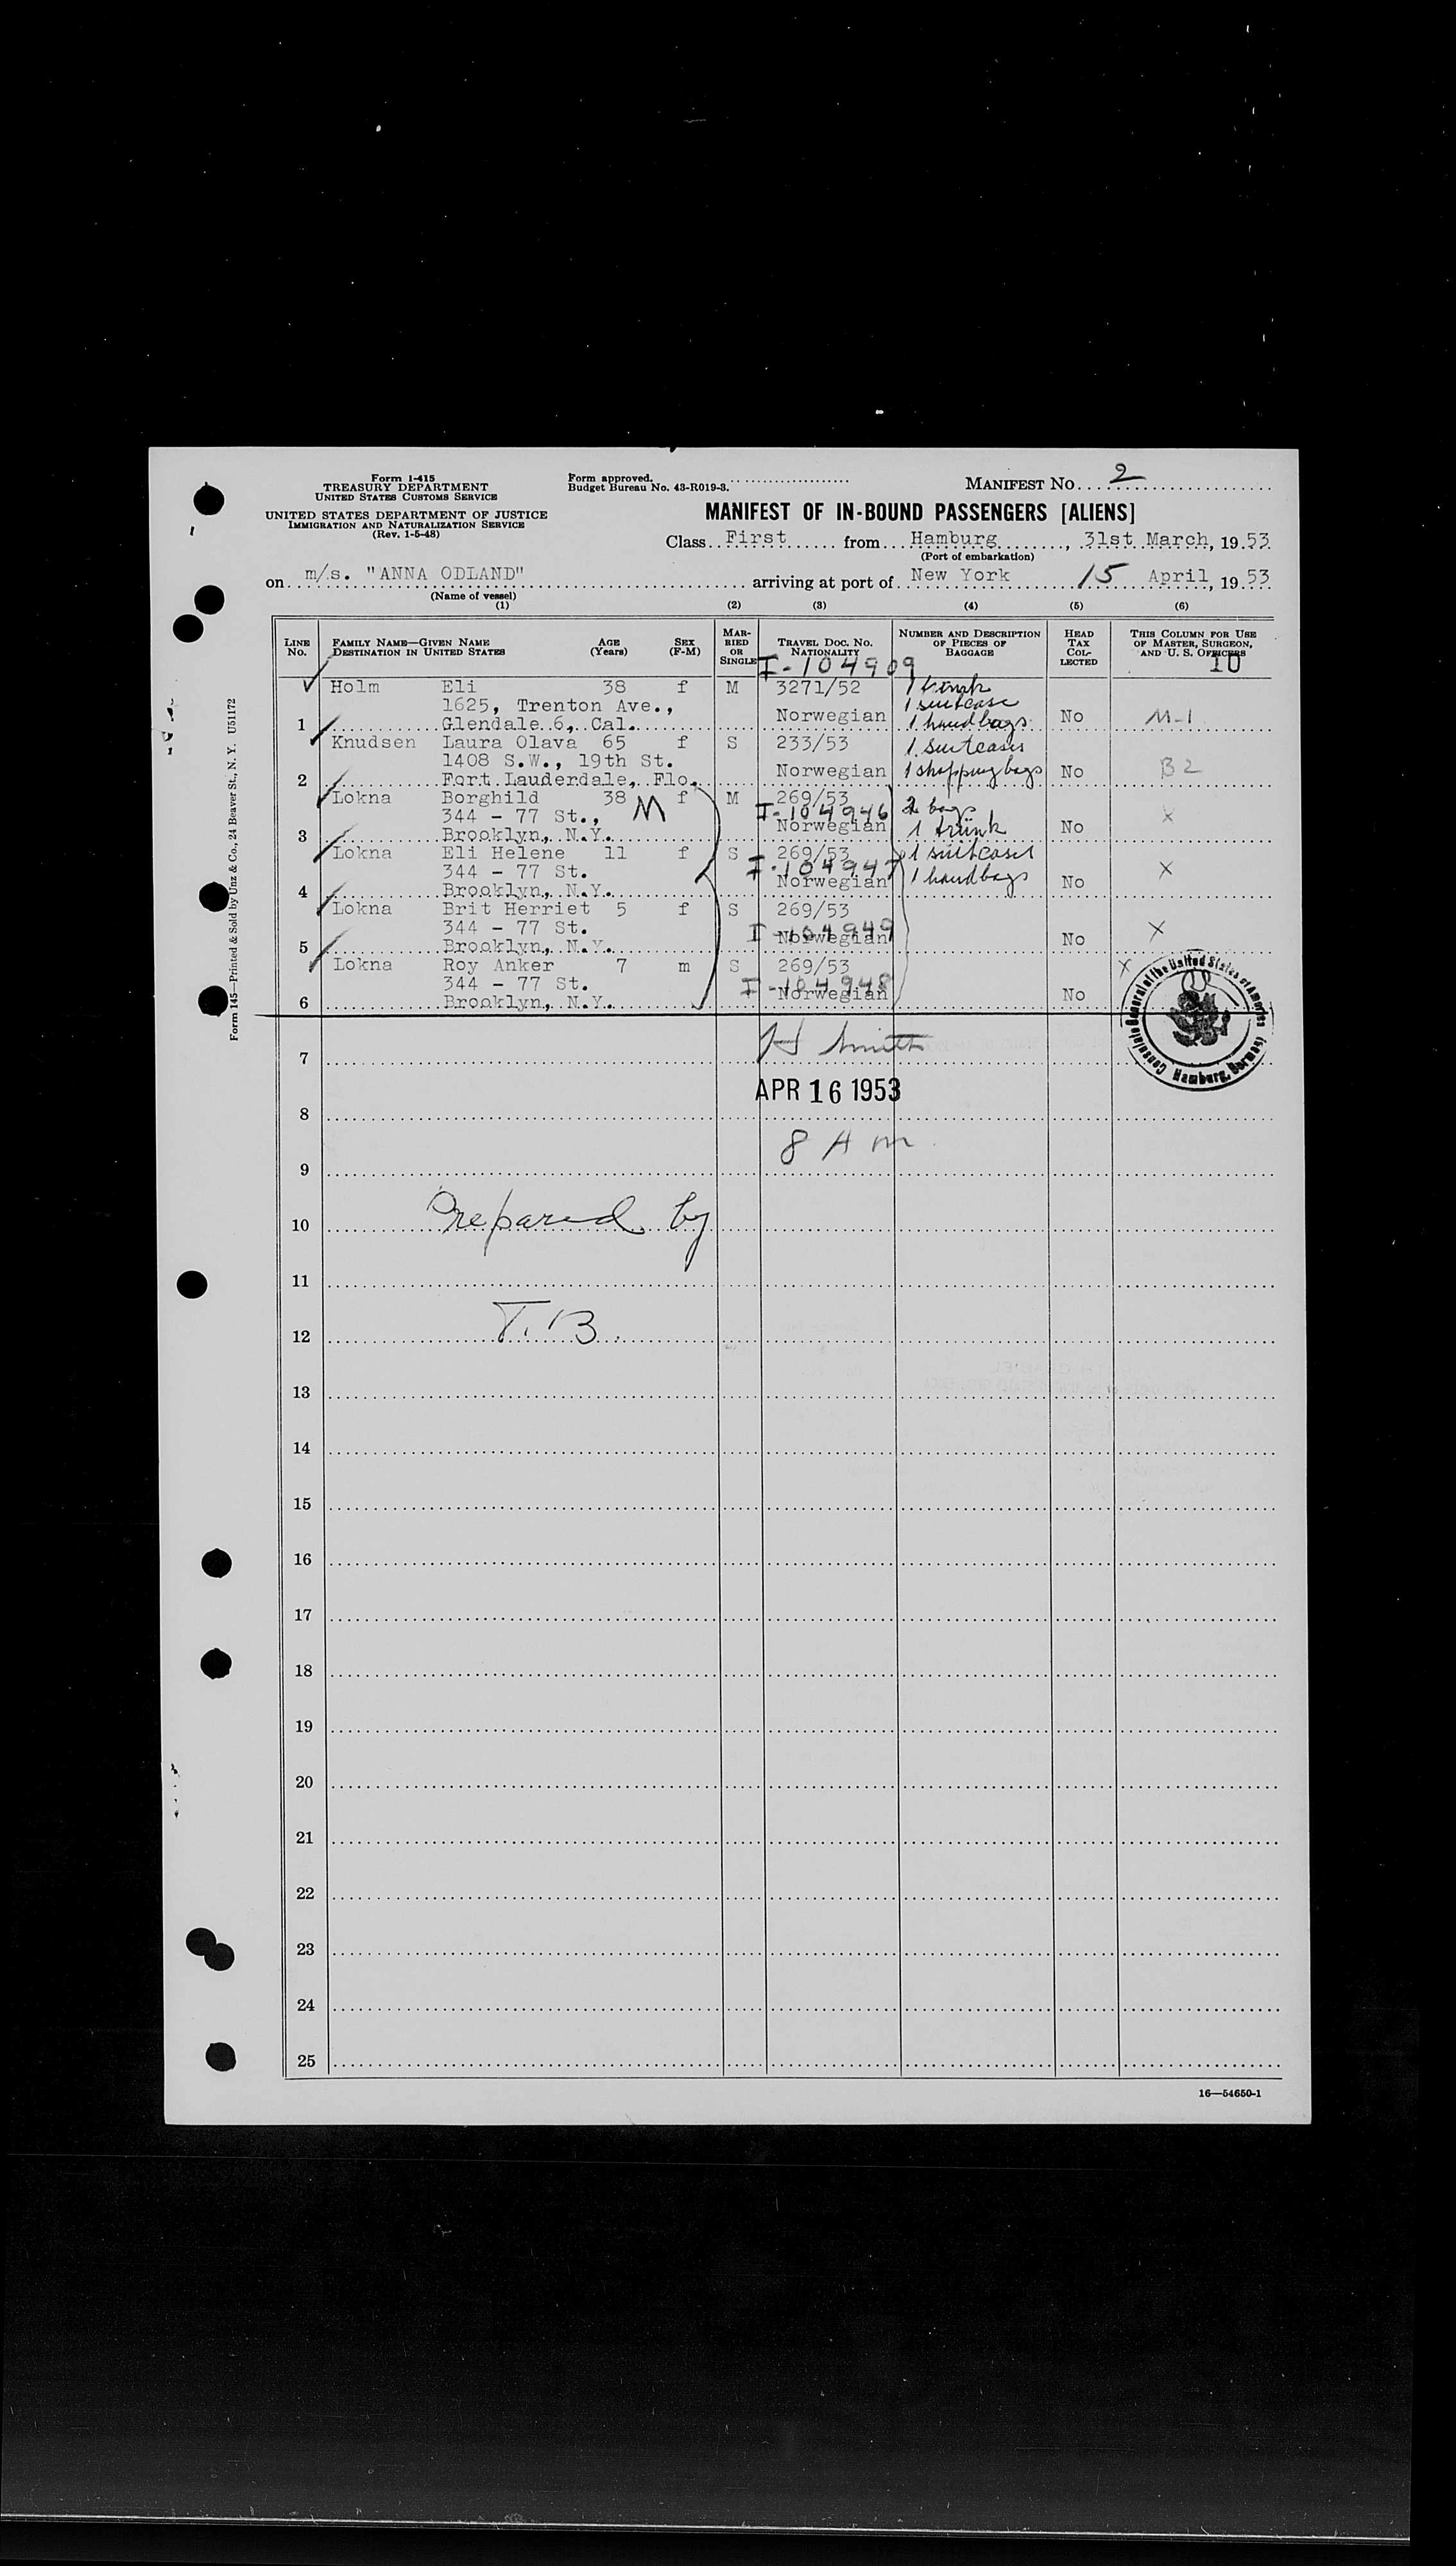 Form I-415
TREASURY DEPARTMENT
UNITED STATES CUSTOMS SERVICE
UNITED STATES DEPARTMENT OF JUSTICE
IMMIGRATION AND NATURALIZATION SERVICE
(Rev. 1-5-48)
Form approved.
Budget Bureau No. 43-R019-3.
MANIFEST NO. 2
MANIFEST OF IN-BOUND PASSENGERS [ALIENS]
Class First from Hamburg, 31st March, 19 53
(Port of embarkation)
on m/s. "ANNA ODLAND" arriving at port of New York 15 April, 19 53
(Name of vessel)
(1) (2) (3) (4) (5) (6)
LINE NO.
FAMILY NAME—GIVEN NAME
DESTINATION IN UNITED STATES
AGE (Years)
SEX (F-M)
MARRIED OR SINGLE
TRAVEL DOC. NO. NATIONALITY
NUMBER AND DESCRIPTION OF PIECES OF BAGGAGE
HEAD TAX COLLECTED
THIS COLUMN FOR USE OF MASTER, SURGEON, AND U. S. OFFICERS
10
I-104909
Holm Eli 38 f M 3271/52 1 trunk
1625, Trenton Ave., 1 suitcase
1 Glendale 6, Cal. Norwegian 1 handbags No M-1
Knudsen Laura Olava 65 f S 233/53 1 suitcases
1408 S.W., 19th St.
2 Fort Lauderdale, Flo. Norwegian 1 shopping bags No B2
Lokna Borghild 38 M f M 269/53 2 bags
344 - 77 St., I-104946
3 Brooklyn, N.Y. Norwegian 1 trunk No X
Lokna Eli Helene 11 f S 269/53 1 suitcases
344 - 77 St. I-104947
4 Brooklyn, N.Y. Norwegian 1 handbags No X
Lokna Brit Herriet 5 f S 269/53
344 - 77 St. I-104949
5 Brooklyn, N.Y. Norwegian No X
Lokna Roy Anker 7 m S 269/53 X
344 - 77 St. I-104948
6 Brooklyn, N.Y. Norwegian No
Consulate General of the United States of America
Hamburg, Germany
7 H Smith
APR 16 1953
8
8 A m
9
10 Prepared by
11
12 T.B.
13
14
15
16
17
18
19
20
21
22
23
24
25
16—54650-1
Form 145—Printed & Sold by Unz & Co., 24 Beaver St., N. Y. U51172